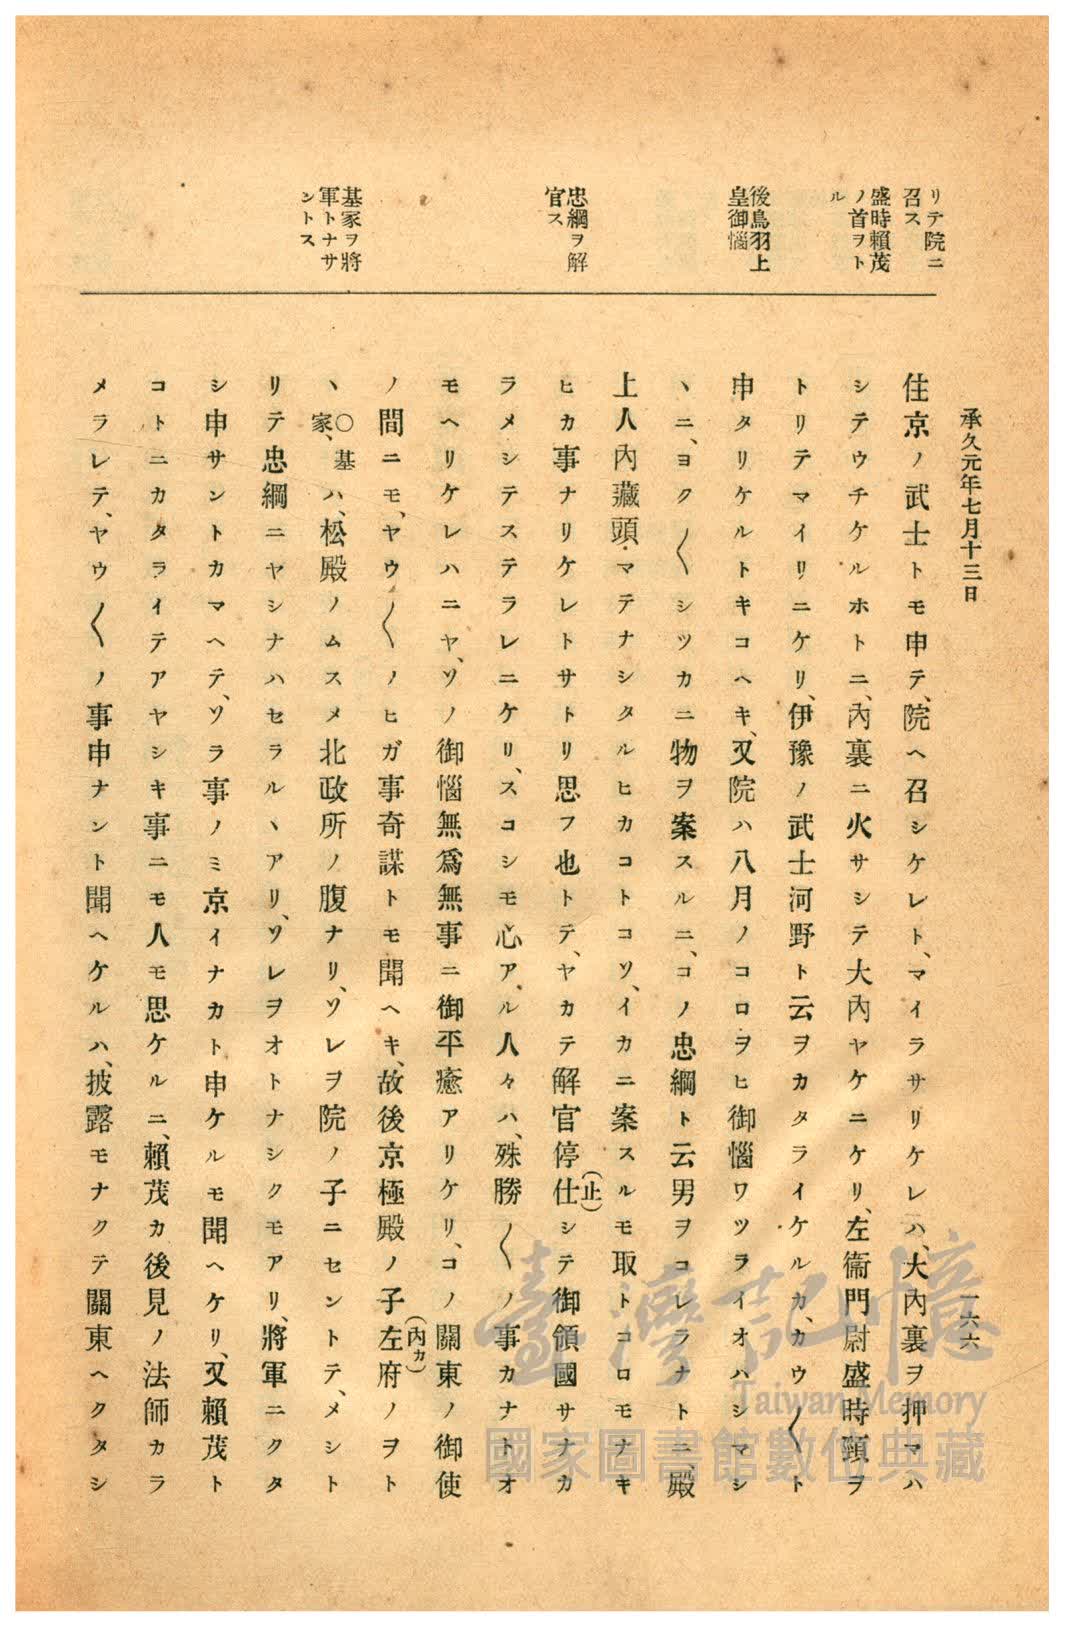 承久元年七月十三日
一六六
リテ院ニ
召ス
盛時賴茂
ノ首ヲト
ル
後鳥羽上
皇御惱
忠綱ヲ解
官ス
基家ヲ將
軍トナサ
ントス
住京ノ武士トモ申テ、院ヘ召シケレト、マイラサリケレハ、大內裏ヲ押マハ
シテウチケルホトニ、內裏ニ火サシテ大內ヤケニケリ、左衞門尉盛時頸ヲ
トリテマイリニケリ、伊豫ノ武士河野ト云ヲカタライケルカ、カウ〱ト
申タリケルトキコヘキ、又院ハ八月ノコロヲヒ御惱ワツライオハシマシ
ヽニ、ヨク〱シツカニ物ヲ案スルニ、コノ忠綱ト云男ヲコレラナトニ、殿
上人內藏頭マテナシタルヒカコトコソ、イカニ案スルモ取トコロモナキ
ヒカ事ナリケレトサトリ思フ也トテ、ヤカテ解官停仕(止)シテ御領國サナカ
ラメシテステラレニケリ、スコシモ心アル人々ハ、殊勝ノ〱ノ事カナトオ
モヘリケレハニヤ、ソノ御惱無爲無事ニ御平癒アリケリ、コノ關東ノ御使
ノ間ニモ、ヤウ〱ノヒガ事奇謀トモ聞ヘキ、故後京極殿ノ子左府(內カ)ノヲト
ヽ〇基家、ハ、松殿ノムスメ北政所ノ腹ナリ、ソレヲ院ノ子ニセントテ、メシト
リテ忠綱ニヤシナハセラルヽアリ、ソレヲオトナシクモアリ、將軍ニクタ
シ申サントカマヘテ、ソラ事ノミ京イナカト申ケルモ聞ヘケリ、又賴茂ト
コトニカタライテアヤシキ事ニモ人モ思ケルニ、賴茂カ後見ノ法師カラ
メラレテ、ヤウ〱ノ事申ナント聞ヘケルハ、披露モナクテ關東ヘクタシ
臺灣記憶
Taiwan Memory
國家圖書館數位典藏